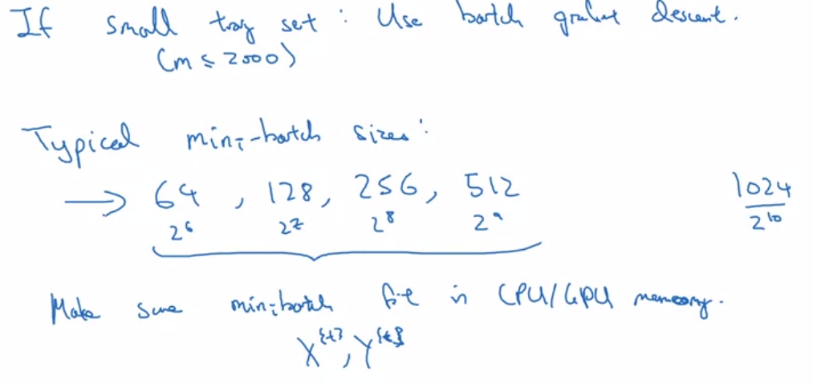 If small tray set : Use batch gradient descent.
(m ≤ 2000)
Typical mini-batch sizes:
→ 64 , 128, 256, 512 1024
2^6 2^7 2^8 2^9 2^10
Make sure minibatch fit in CPU/GPU memory.
X^{t}, Y^{t}